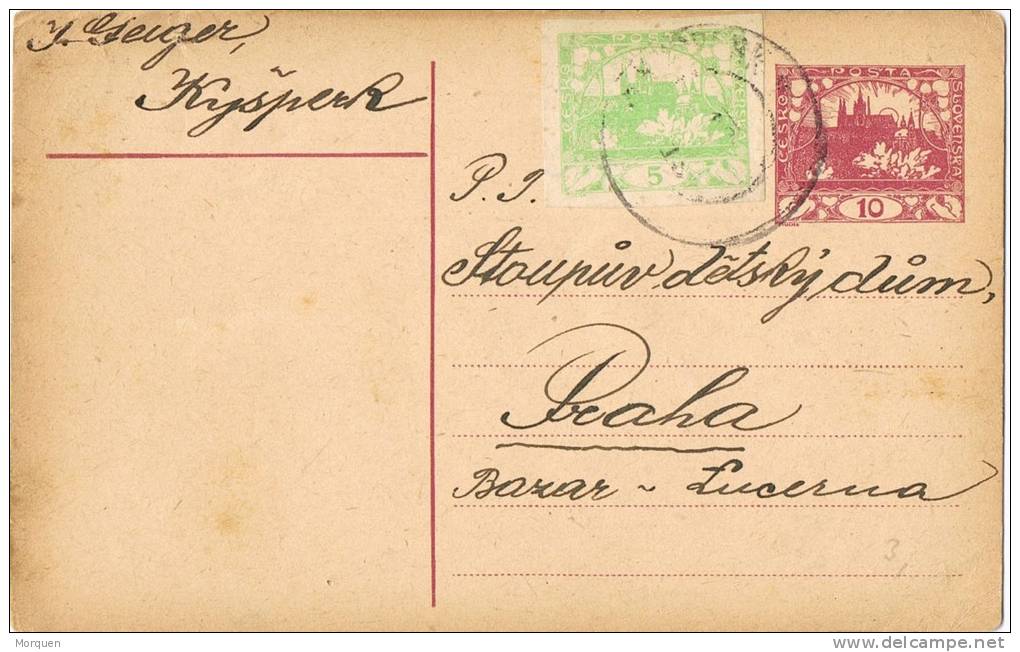 J. Geiger,
Kyšperk
POSTA
ČESKO SLOVENSKÁ
5
POSTA
ČESKO SLOVENSKÁ
10
MUCHA
P. T.
Stoupův dětský dům,
Praha
Bazar ~ Lucerna
3,
Morquen
http://www.delcampe.net